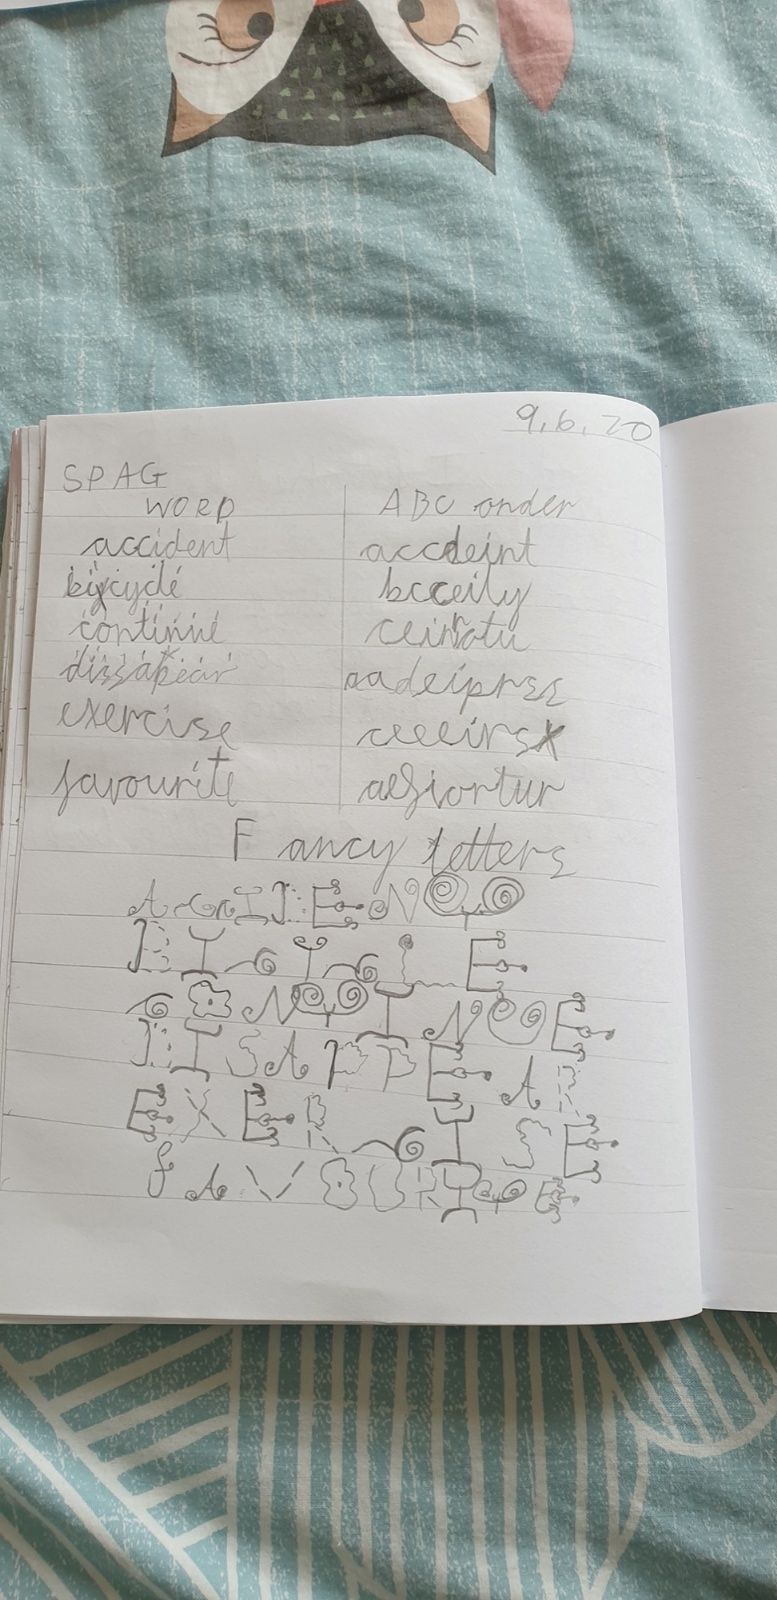 9.6.20
SPAG
WORD ABC order
accident accdeint
bicycle bcceily
continue ceinnotu
dissapear aadeiprss
exercise eeeeirsx
favourite aefiortuv
Fancy letters
ACCIDENT
BICYCLE
CONTINUE
DISAPPEAR
EXERCISE
fAVOURITE